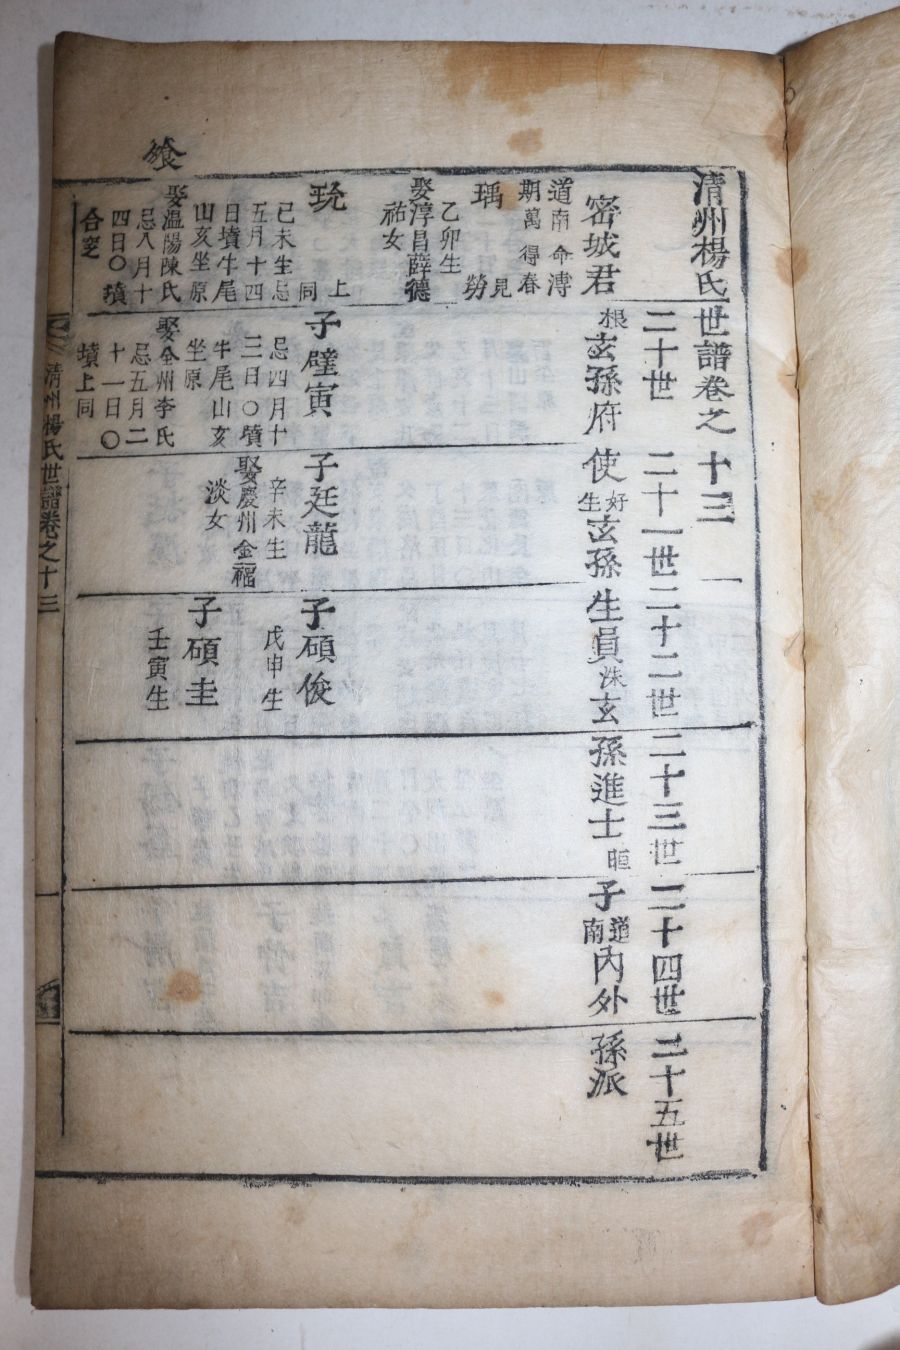 飧
清州楊氏世譜卷之十三　一
二十世 二十一世 二十二世 二十三世 二十四世 二十五世
密城君根玄孫府使好生玄孫生員洙玄孫進士晅子道南內外孫派
道南 命溥
期萬 得春
瑀 見勞
乙卯生
娶淳昌薛德
祐女
珫 上同
己未生忌
五月十四
日墳牛尾
山亥坐原
娶溫陽陳氏
忌八月十
四日〇墳
合窆
子璧寅
忌四月十
三日〇墳
牛尾山亥
坐原
娶全州李氏
忌五月二
十一日〇
墳上同
子廷龍
辛未生
娶慶州金福
淡女
子碩俊
戊申生
子碩圭
壬寅生
清州楊氏世譜卷之十三
一